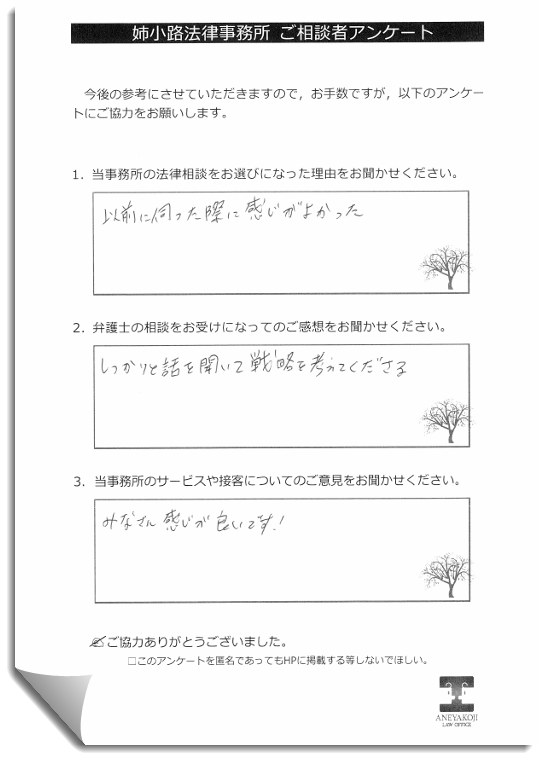 姉小路法律事務所 ご相談者アンケート
今後の参考にさせていただきますので，お手数ですが，以下のアンケー
トにご協力をお願いします。
1．当事務所の法律相談をお選びになった理由をお聞かせください。
以前に伺った際に感じがよかった
2．弁護士の相談をお受けになってのご感想をお聞かせください。
しっかりと話を聞いて戦略を考えてくださる
3．当事務所のサービスや接客についてのご意見をお聞かせください。
みなさん感じが良いです！
✍ご協力ありがとうございました。
□このアンケートを匿名であってもHPに掲載する等しないでほしい。
ANEYAKOJI
LAW OFFICE